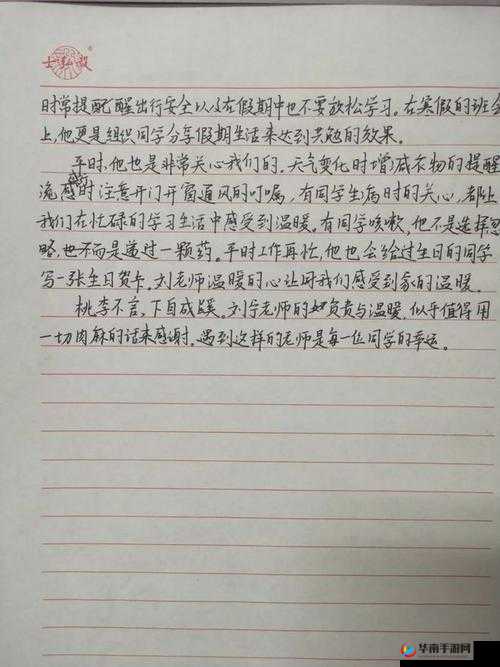 士弘毅
时常提醒出行安全以及在假期中也不要放松学习。在寒假的班会
上,他更是组织同学分享假期生活来达到共勉的效果。
平时,他也是非常关心我们的。天气变化时增减衣物的提醒
流感时注意开门开窗通风的叮嘱,有同学生病时的关心,都让
我们在忙碌的学习生活中感受到温暖。有同学咳嗽,他不是选择忽
略,也不而是递过一颗药。平时工作再忙,他也会给过生日的同学
写一张生日贺卡。刘老师温暖的心让我们感受到家的温暖。
桃李不言,下自成蹊。刘宇老师的负责与温暖,似乎值得用
一切肉麻的话来感谢。遇到这样的老师是每一位同学的幸运。
华南手游网